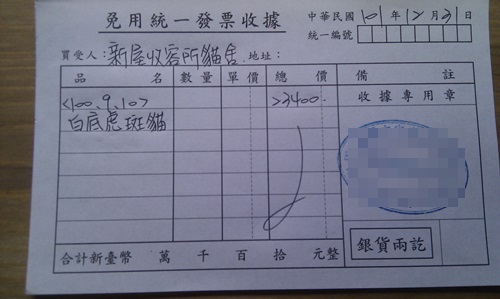 免用統一發票收據
中華民國101年12月31日
統一編號
買受人:新屋收容所貓舍 地址:
品名 數量 單價 總價 備註
<100.9.10> >3400. 收據專用章
白底虎斑貓
合計新臺幣 萬 千 百 拾 元整
銀貨兩訖